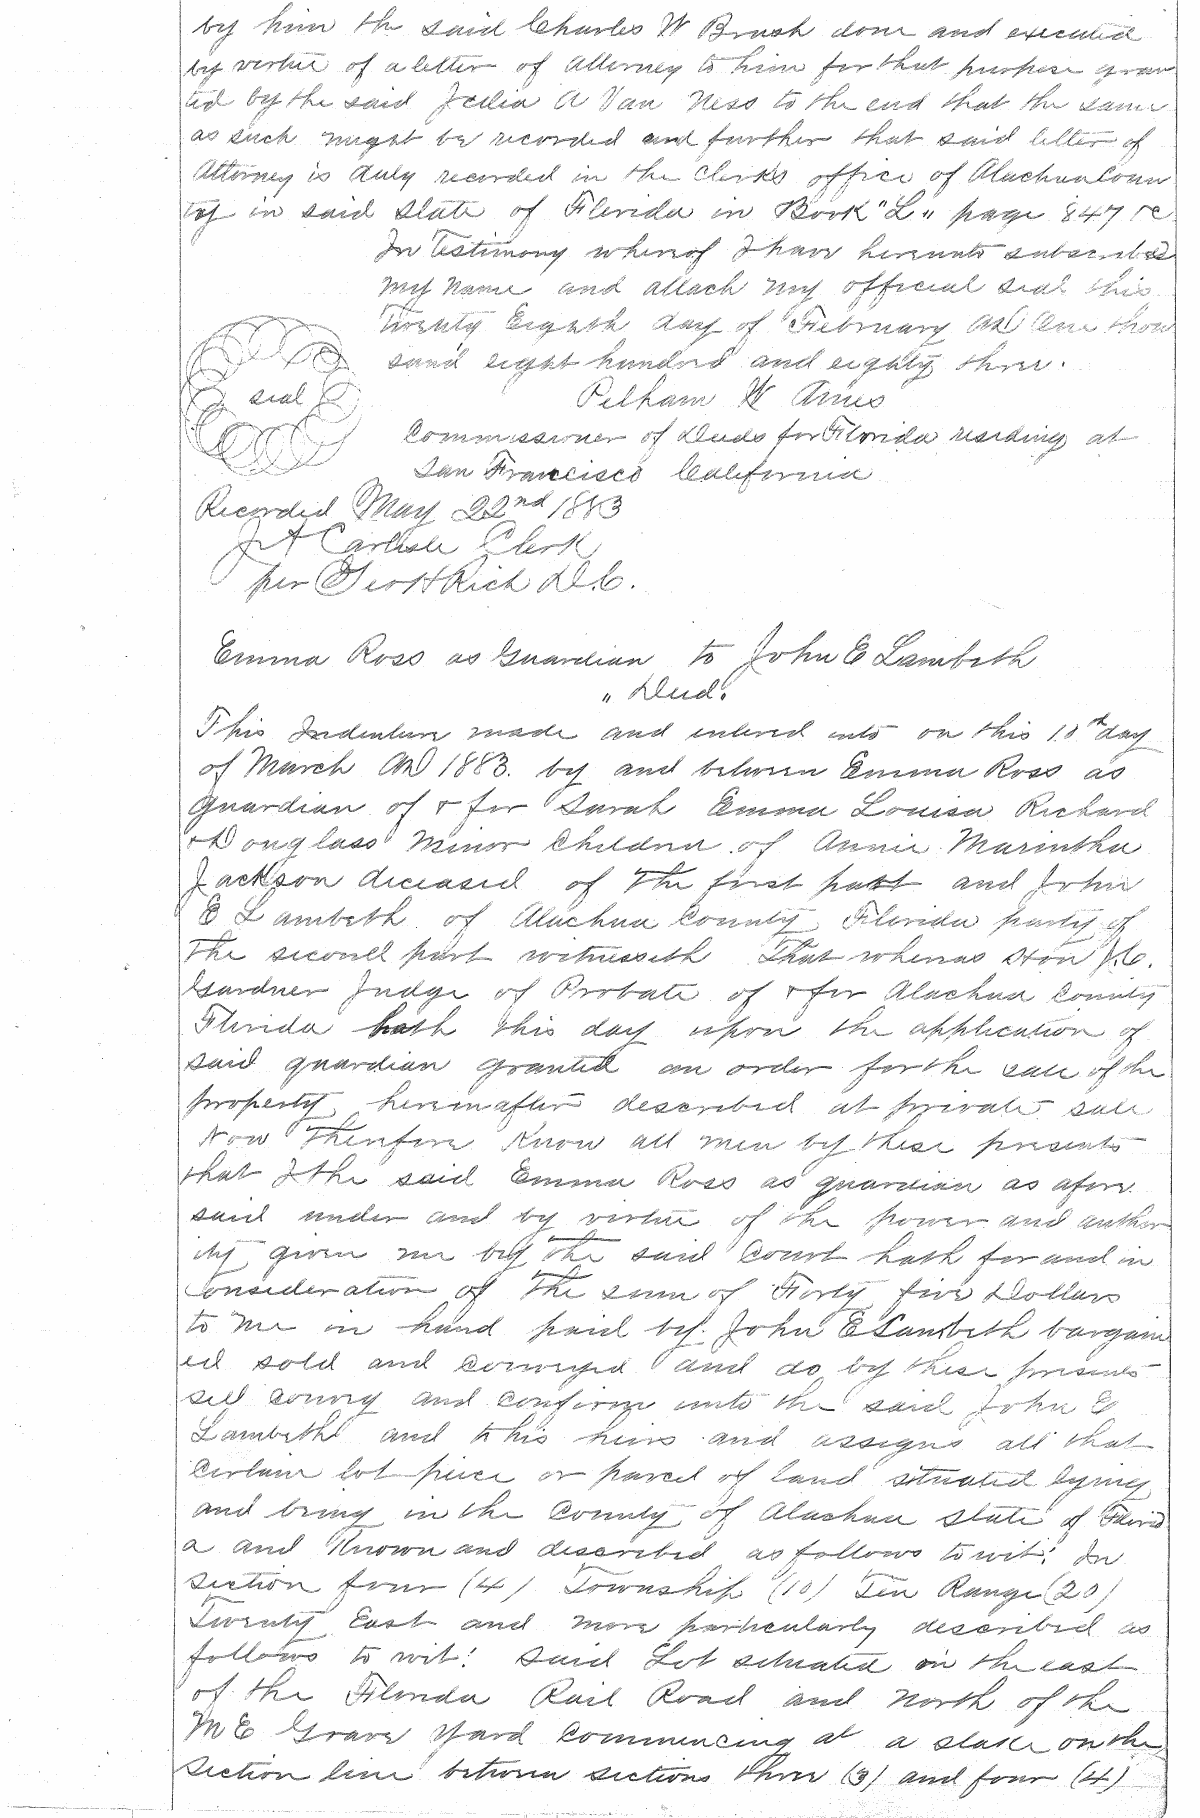 by him the said Charles W Brush done and executed
by virtue of a letter of Attorney to him for that purpose gran
ted by the said Julia A Van Ness to the end that the same
as such might be recorded and further that said letter of
Attorney is duly recorded in the Clerks office of Alachua Coun
ty in said State of Florida in Book "L" page 847 &c
In Testimony whereof I have hereunto subscribed
my name and attach my official seal this
Twenty Eighth day of February AD One thou
sand eight hundred and eighty three.
seal
Pelham W Ames
Commissioner of Deeds for Florida residing at
San Francisco California
Recorded May 22nd 1883
J A Carlisle Clerk
per Geo H Rich D.C.
Emma Ross as Guardian to John E Lambeth
" Deed.
This Indenture made and entered into on this 10th day
of March AD 1883. by and between Emma Ross as
Guardian of & for Sarah Emma Louisa Richard
& Douglass Minor Children of Annie Marintha
Jackson deceased of the first part and John
E Lambeth of Alachua County Florida party of
the second part witnesseth That whereas Hon J.C.
Gardner Judge of Probate of & for Alachua County
Florida hath this day upon the application of
said guardian granted an order for the sale of the
property hereinafter described at private sale
Now Therefore Know all men by these presents
that I the said Emma Ross as guardian as afore
said under and by virtue of the power and author
ity given me by the said Court hath for and in
Consideration of the sum of Forty five Dollars
to me in hand paid by John E Lambeth bargain
ed sold and conveyed and do by these presents
sell convey and confirm unto the said John E
Lambeth and to his heirs and assigns all that
certain lot piece or parcel of land situated lying
and being in the County of Alachua State of Florid
a and Known and described as follows to wit: In
Section four (4) Township (10) Ten Range (20)
Twenty East and more particularly described as
follows to wit: Said Lot situated on the east
of the Florida Rail Road and North of the
M E Grave Yard Commencing at a stake on the
Section line between sections three (3) and four (4)